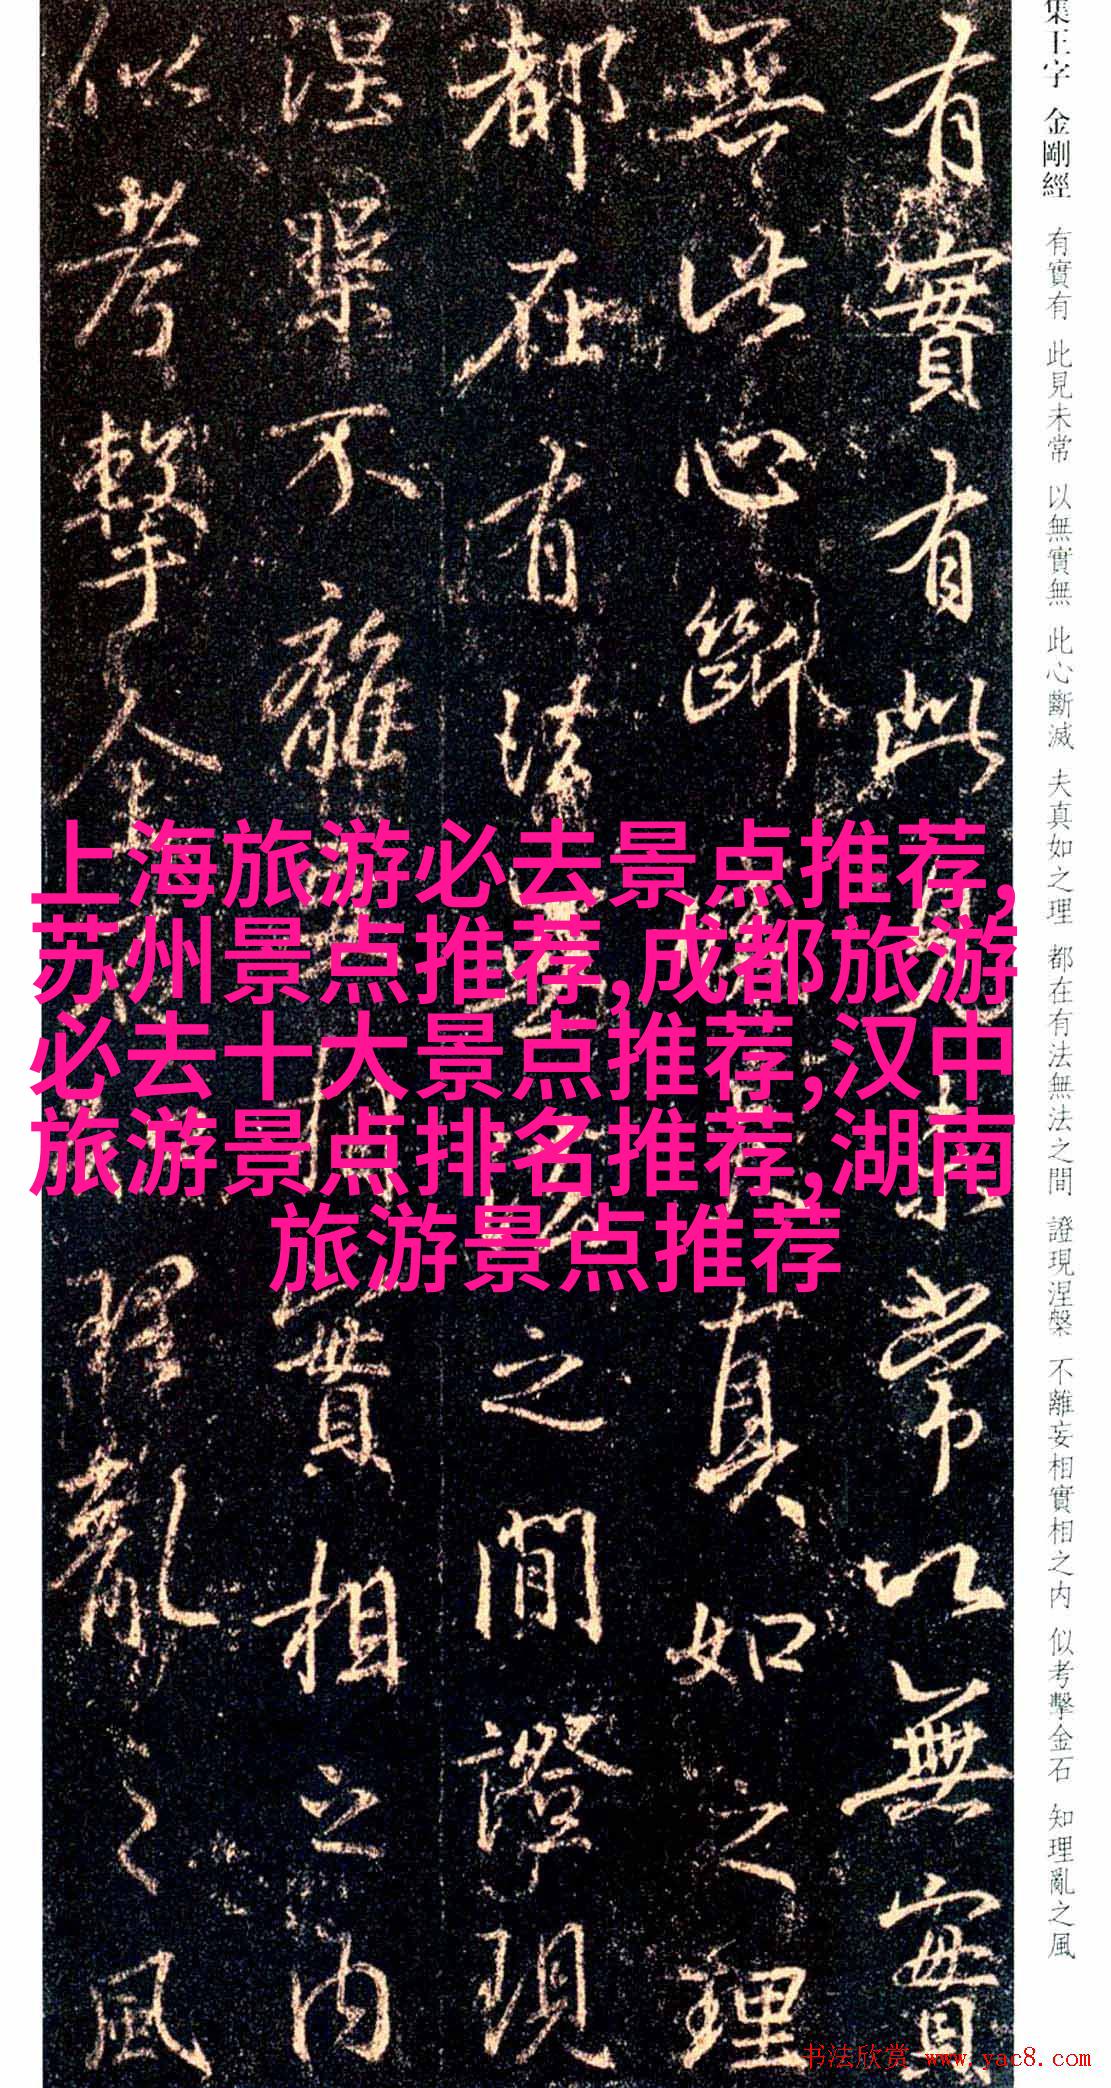 集王字 金剛經 有實有 此見未常 以無實無 此心斷滅 夫真如之理 都在有法無法之間 證現涅槃 不離妄相實相之内 似考擊金石 知理亂之風
有實有此見未常以無實
無此心斷滅夫真如之理
都在有法無法之間證現
涅槃不離妄相實相之内
似考擊金石知理亂之風
上海旅游必去景点推荐,
苏州景点推荐,成都旅游
必去十大景点推荐,汉中
旅游景点排名推荐,湖南
旅游景点推荐
书法欣赏 www.yac8.com